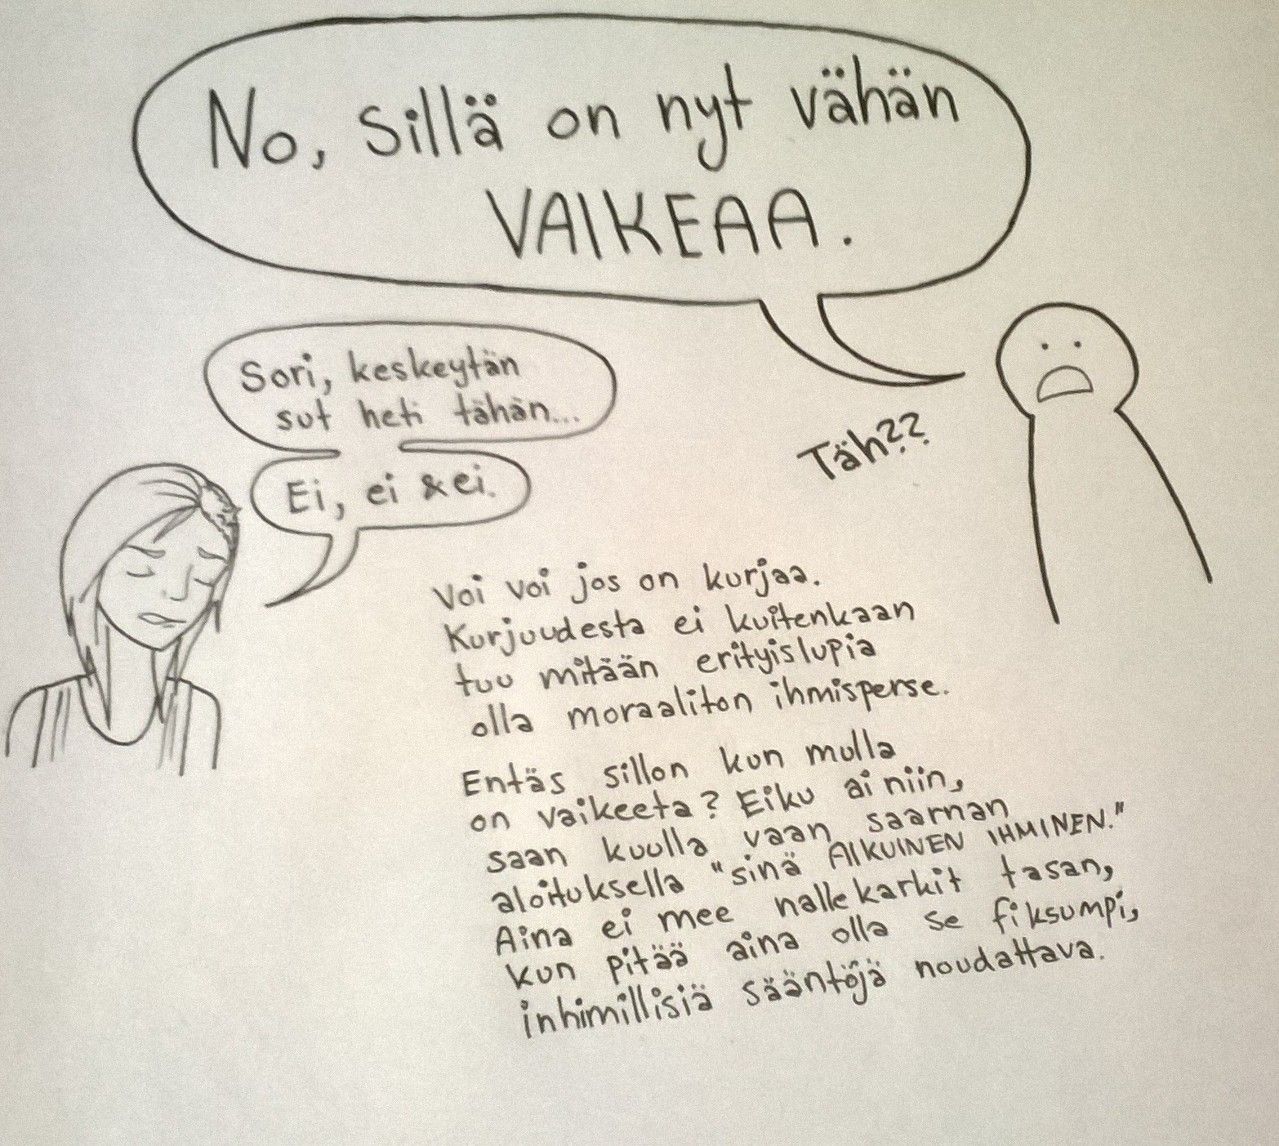 No, sillä on nyt vähän
VAIKEAA.
Sori, keskeytän
sut heti tähän...
Ei, ei & ei.
Täh??
Voi voi jos on kurjaa.
Kurjuudesta ei kuitenkaan
tuu mitään erityislupia
olla moraaliton ihmisperse.
Entäs sillon kun mulla
on vaikeeta? Eiku ai niin,
saan kuulla vaan saarnan
aloituksella "sinä AIKUINEN IHMINEN."
Aina ei mee nallekarkit tasan,
kun pitää aina olla se fiksumpi,
inhimillisiä sääntöjä noudattava.